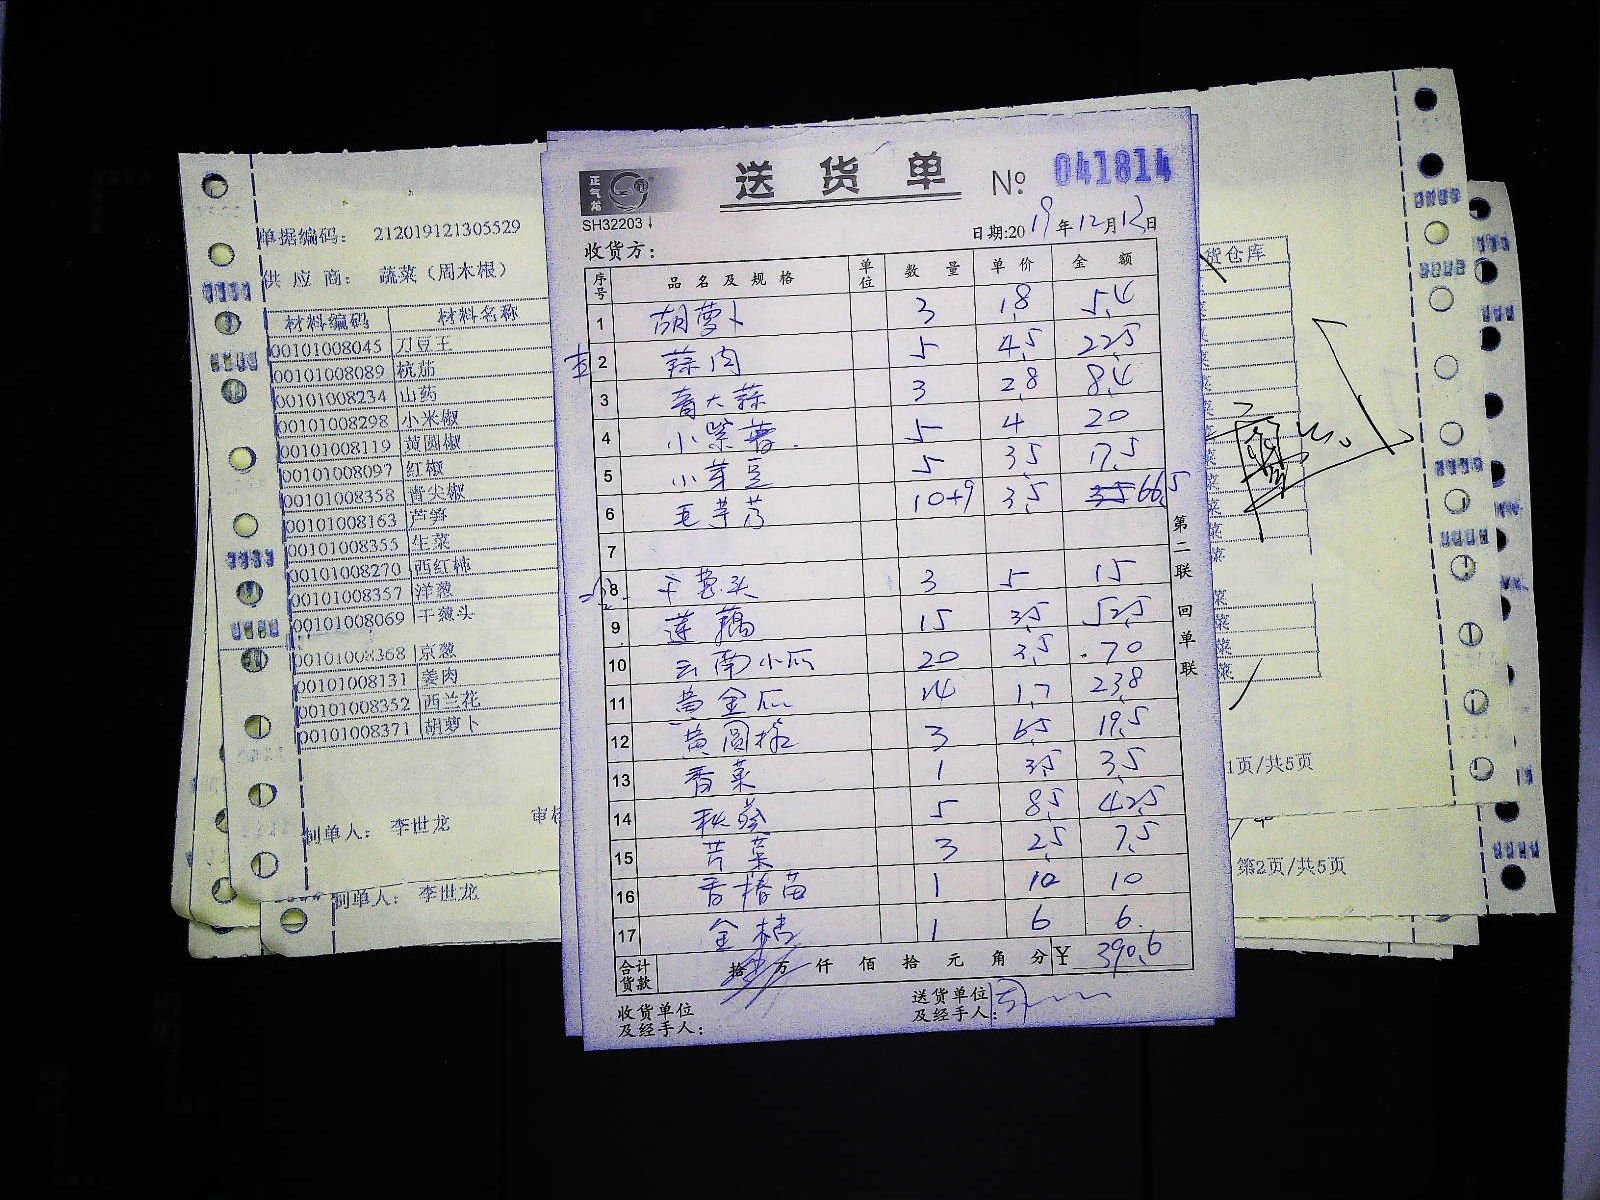 正气龙
SH32203
送 货 单 № 041814
日期:2019年12月13日
收货方:
序号 品名及规格 单位 数量 单价 金额
1 胡萝卜 3 1.8 5.4
2 蒜肉 5 4.5 22.5
3 青大蒜 3 2.8 8.4
4 小紫薯 5 4 20
5 小芋豆 5 3.5 17.5
6 毛芋艿 10+9 3.5 35 66.5
7
8 干葱头 3 5 15
9 莲藕 15 3.5 52.5
10 云南小瓜 20 3.5 70
11 黄金瓜 14 1.7 23.8
12 黄圆椒 3 6.5 19.5
13 香菜 1 3.5 3.5
14 秋葵 5 8.5 42.5
15 芹菜 3 2.5 7.5
16 香椿苗 1 10 10
17 金桔 1 6 6.
合计货款 拾 万 仟 佰 拾 元 角 分 ¥ 390.6
收货单位及经手人:
送货单位及经手人:
第二联 回单联
单据编码: 212019121305529
供应商: 蔬菜(周木根)
材料编码 材料名称
00101008045 刀豆王
00101008089 杭茄
00101008234 山药
00101008298 小米椒
00101008119 黄圆椒
00101008097 红椒
00101008358 青尖椒
00101008163 芦笋
00101008355 生菜
00101008270 西红柿
00101008357 洋葱
00101008069 干葱头
00101008368 京葱
00101008131 姜肉
00101008352 西兰花
00101008371 胡萝卜
制单人: 李世龙
审核
制单人: 李世龙
货仓库
菜
菜
菜
菜
菜
菜
菜
菜
菜
菜
1页/共5页
第2页/共5页